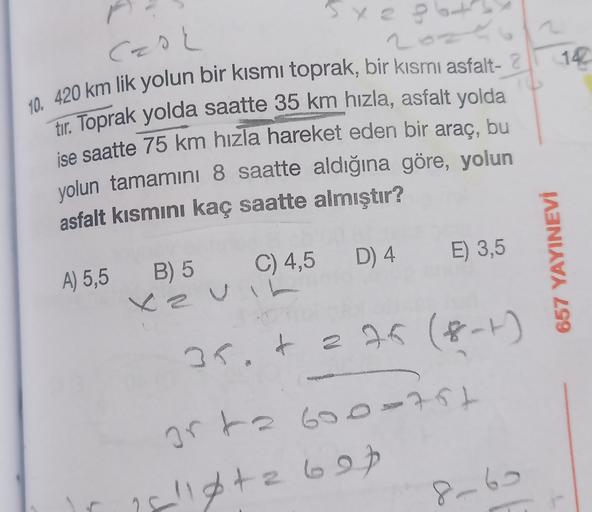 10. 420 km lik yolun bir kısmı toprak, bir kısmı asfalt-
tır. Toprak yolda saatte 35 km hızla, asfalt yolda
ise saatte 75 km hızla hareket eden bir araç, bu
yolun tamamını 8 saatte aldığına göre, yolun
asfalt kısmını kaç saatte almıştır?
A) 5,5 B) 5 C) 4,5 D) 4 E) 3,5
35. t = 75 (8-t)
35 t = 600 - 75 t
657 YAYINEVİ